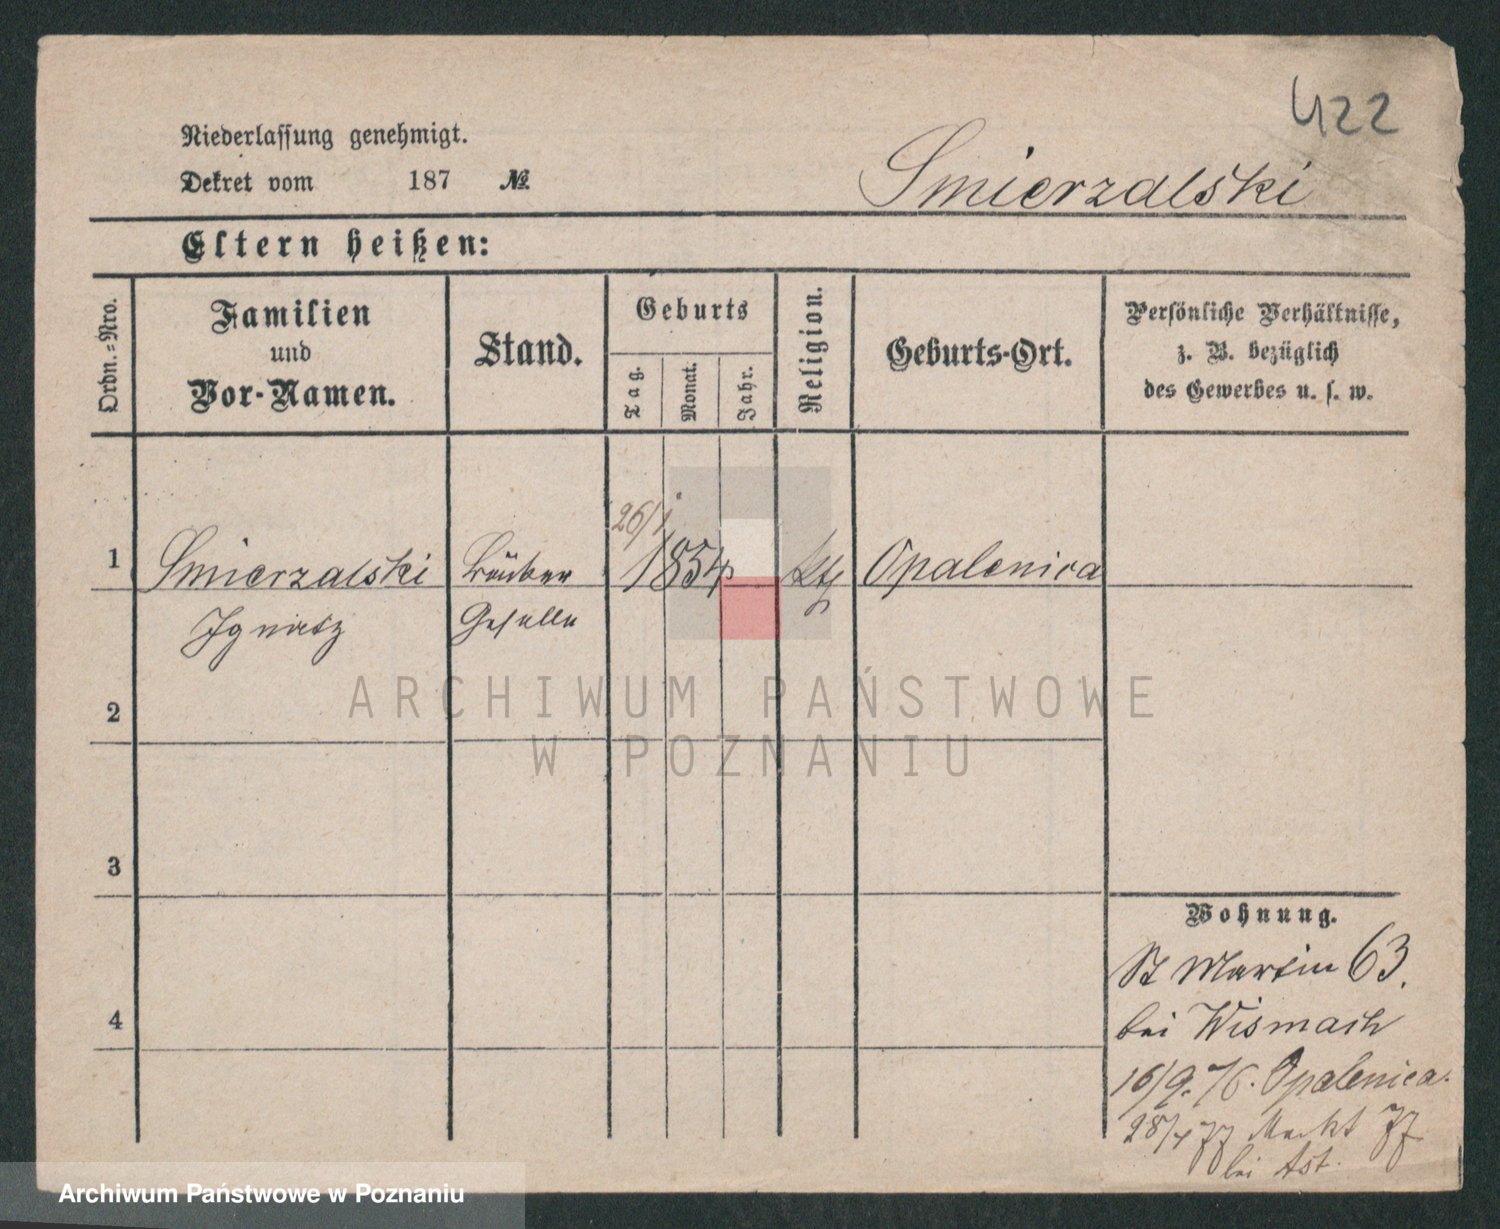 422
Niederlassung genehmigt.
Dekret vom 187 №
Smierzalski
Eltern heißen:
Ordn.=Nro.
Familien
und
Vor-Namen.
Stand.
Geburts
Tag.
Monat.
Jahr.
Religion.
Geburts-Ort.
Persönliche Verhältnisse,
z. B. bezüglich
des Gewerbes u. s. w.
26/1
1 Smierzalski 1854 kth Opalenica
Ignatz Geselle
2
3
4
Wohnung.
St Martin 63.
bei Wismach
16/9. 76. Opalenica.
Markt 77
bei
ARCHIWUM PAŃSTWOWE
W POZNANIU
Archiwum Państwowe w Poznaniu